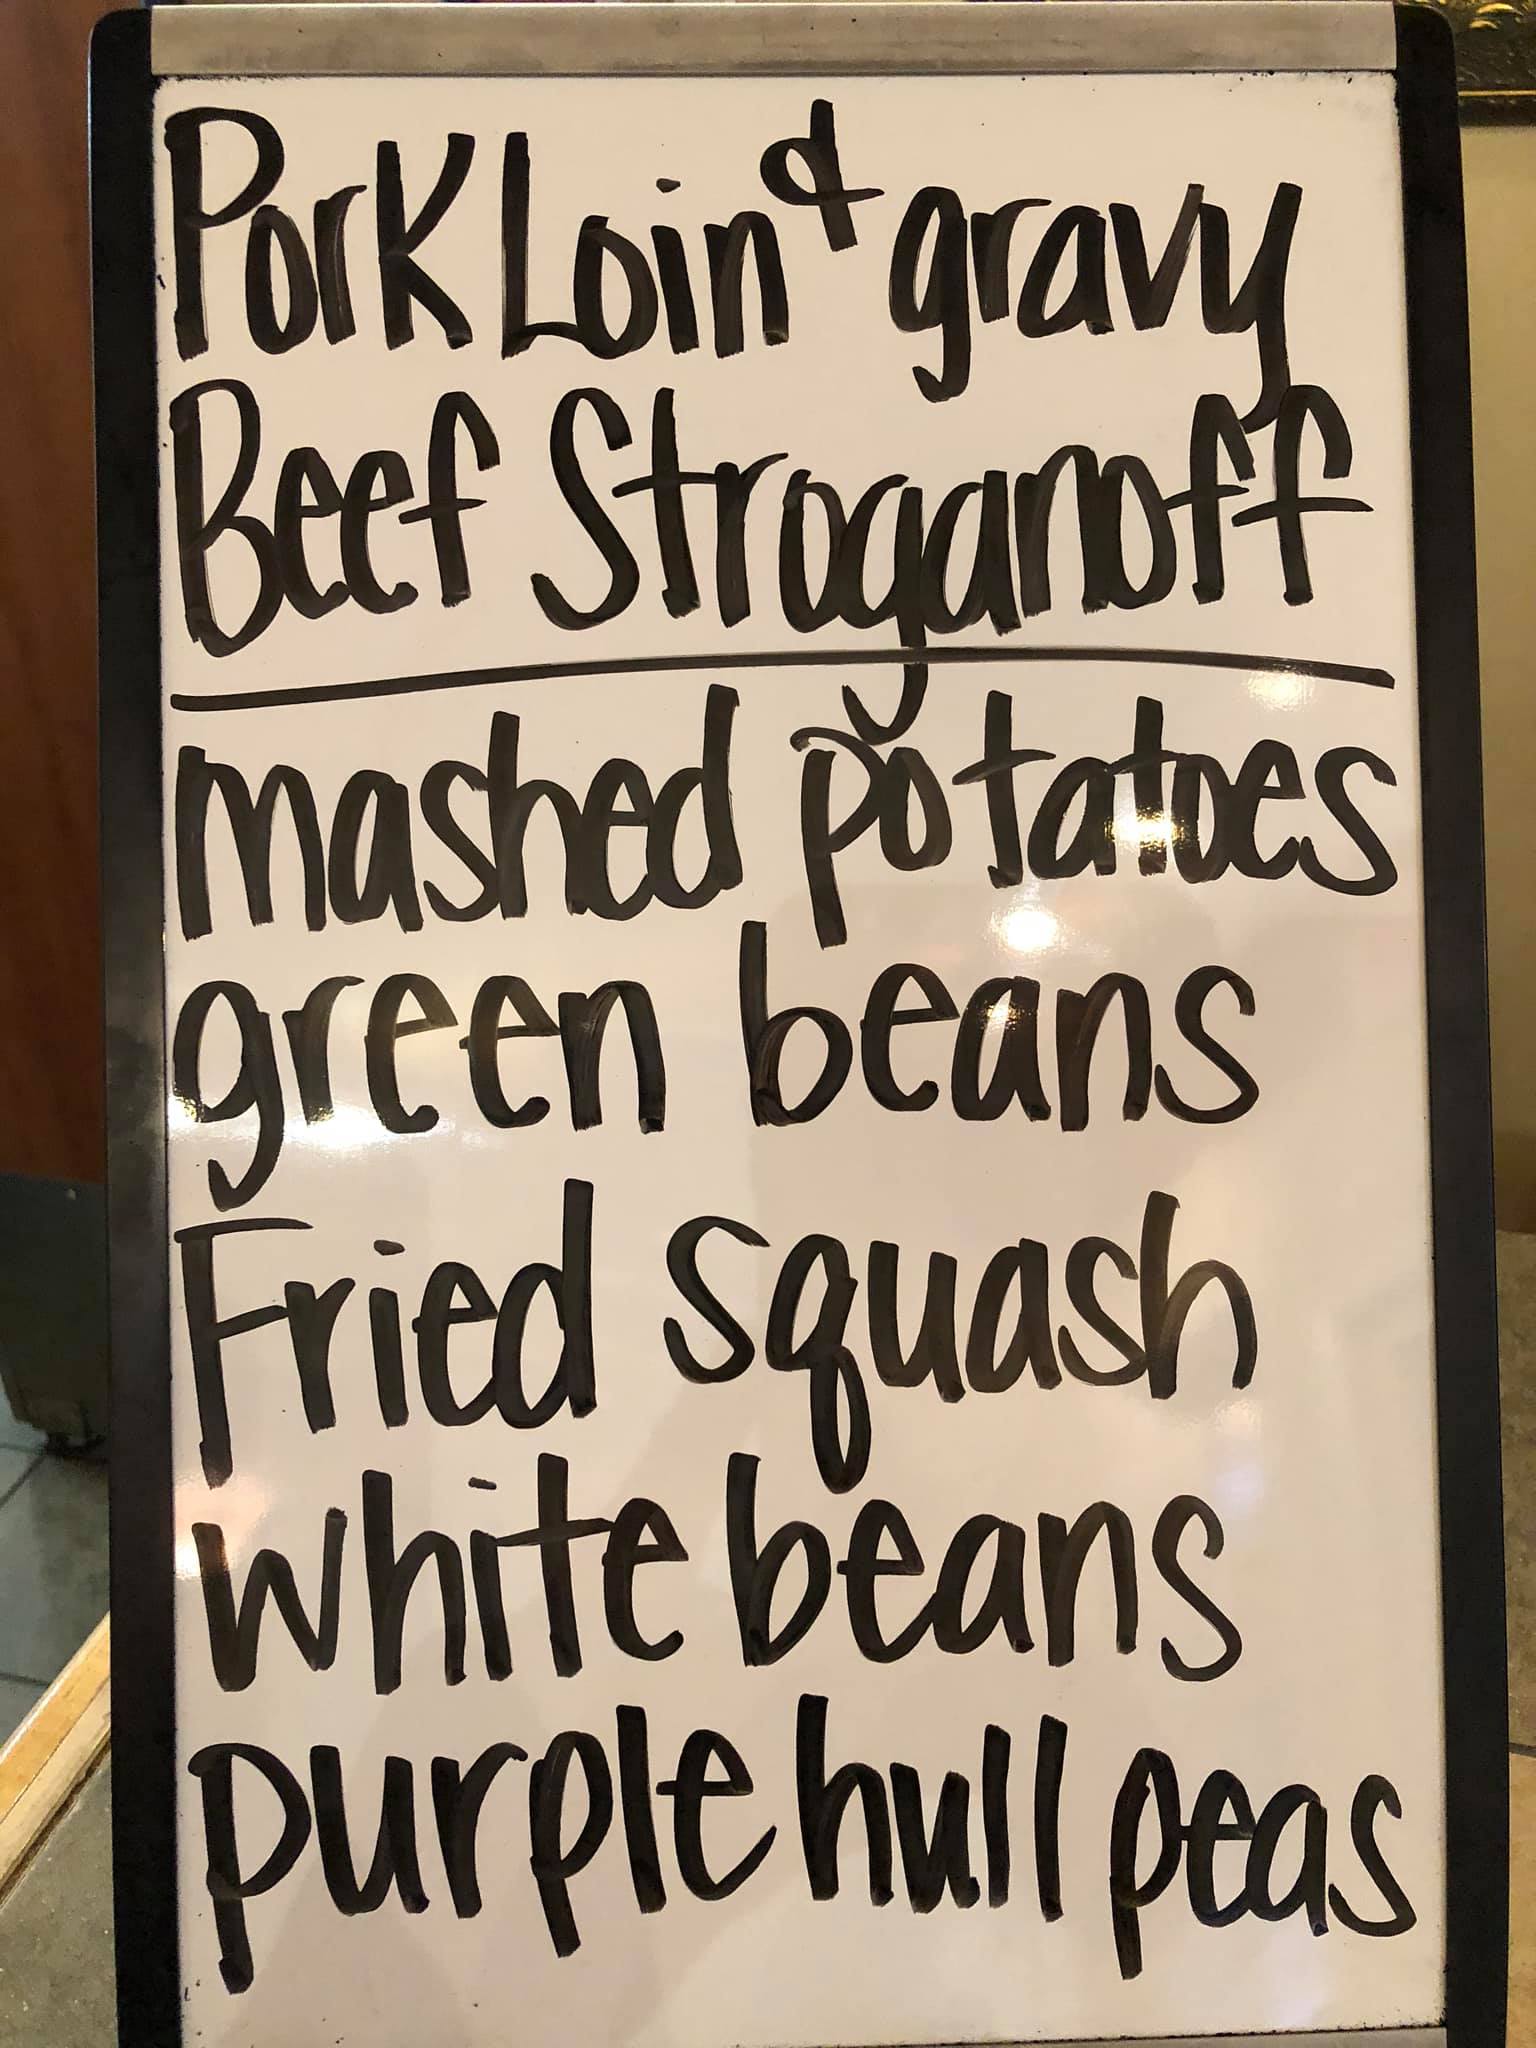 Pork Loin & gravy
Beef Stroganoff
mashed potatoes
green beans
Fried squash
white beans
purple hull peas